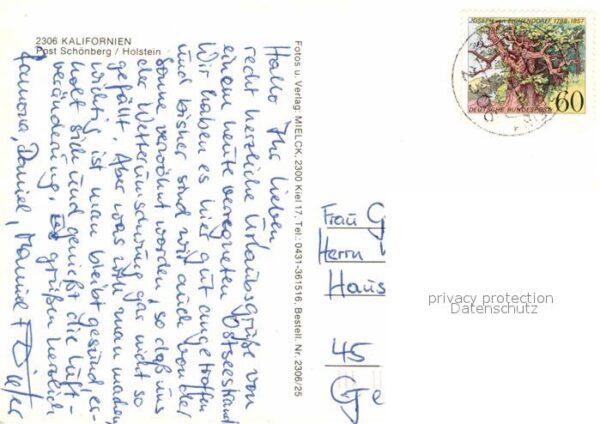 2306 KALIFORNIEN
Post Schönberg / Holstein
Hallo Ihr Lieben,
recht herzliche Urlaubsgrüße von
einem heute verregneten Ostseestrand
Wir haben es hier gut angetroffen
und bisher sind wir auch von der
Sonne verwöhnt worden, so daß uns
der Wetterumschwung gar nicht so
gefällt. Aber was will man machen,
wichtig ist man bleibt gesund, er-
holt sich und genießt die Luft-
veränderung. Es grüßen herzlich
Ramona, Daniel, Manuel + Dieter
Fotos u. Verlag: MIELCK, 2300 Kiel 17, Tel.: 0431-361516, Bestell. Nr. 2306/25
JOSEPH von EICHENDORFF 1788-1857
DEUTSCHE BUNDESPOST 60
Frau G
Herrn
Haus
45
privacy protection
Datenschutz